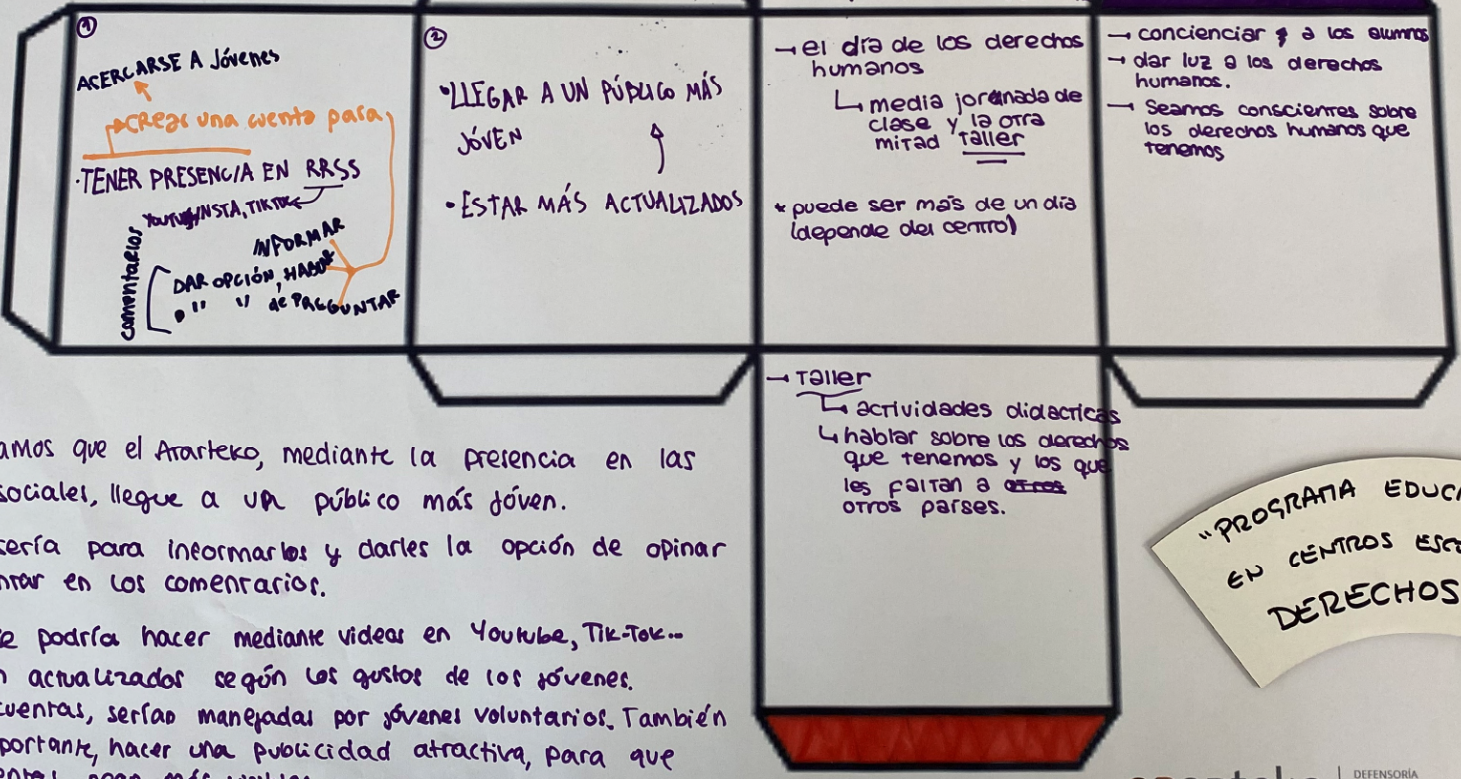 ①
ACERCARSE A Jóvenes
crear una cuenta para
·TENER PRESENCIA EN RRSS
INSTA, TIKTOK
INFORMAR
comentarios
DAR OPCIÓN,
" " de PREGUNTAR
②
•LLEGAR A UN PÚBLICO MÁS
JÓVEN
•ESTAR MÁS ACTUALIZADOS
→ el día de los derechos
humanos
media jornada de
clase y la otra
mitad Taller
* puede ser más de un día
(depende del centro)
→ concienciar a los alumnos
→ dar luz a los derechos
humanos.
→ Seamos conscientes sobre
los derechos humanos que
tenemos
→ Taller
actividades didacticas
hablar sobre los derechos
que tenemos y los que
les faltan a otros
otros países.
amos que el Ararteko, mediante la presencia en las
sociales, llegue a un público más jóven.
sería para informarlos y darles la opción de opinar
ntar en los comentarios.
e podría hacer mediante videos en Youtube, Tik-Tok...
n actualizados según los gustos de los jóvenes.
cuentas, serían manejadas por jóvenes voluntarios. También
portante, hacer una publicidad atractiva, para que
"PROGRAMA EDUCA
EN CENTROS ESC
DERECHOS
DEFENSORÍA